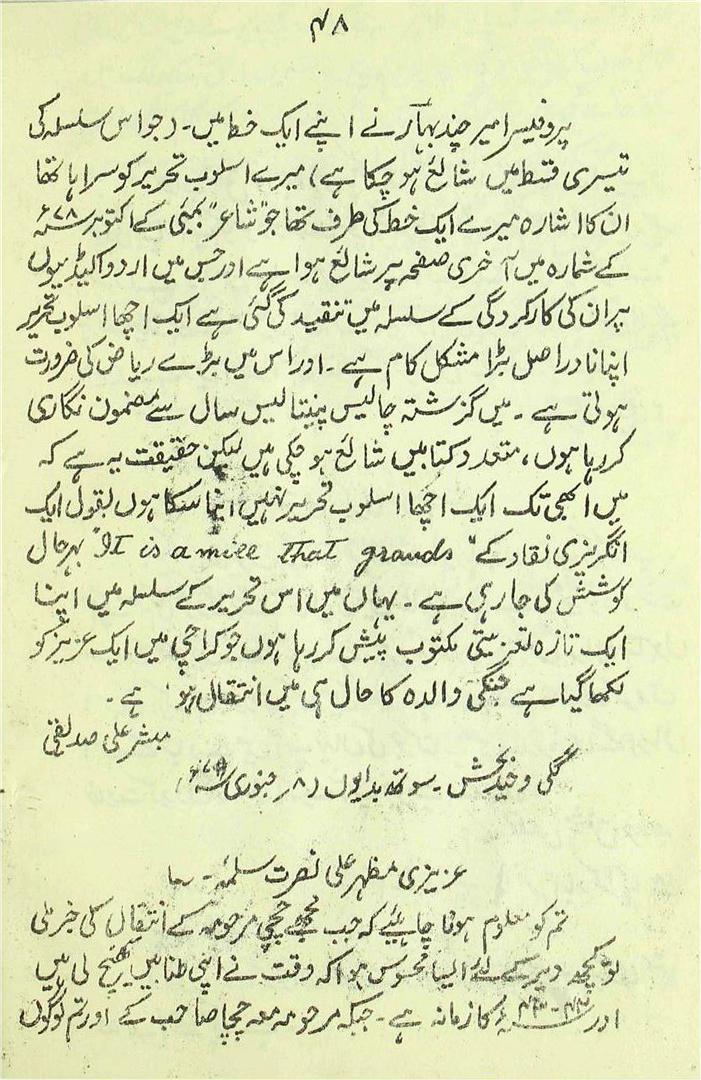 ۴۸
پروفیسر امیر چند بہار نے اپنے ایک خط میں۔ (جو اس سلسلہ کی
تیسری قسط میں شائع ہو چکا ہے) میرے اسلوب تحریر کو سراہا تھا
ان کا اشارہ میرے ایک خط کی طرف تھا جو "شاعر" بمبئی کے اکتوبر ۷۸ء
کے شمارہ میں آخری صفحہ پر شائع ہوا ہے اور جس میں اردو اکیڈیمیوں
پر ان کی کارکردگی کے سلسلہ میں تنقید کی گئی ہے ایک اچھا اسلوب تحریر
اپنانا دراصل بڑا مشکل کام ہے۔ اور اس میں بڑے ریاض کی ضرورت
ہوتی ہے۔ میں گزشتہ چالیس پینتالیس سال سے مضمون نگاری
کر رہا ہوں، متعدد کتابیں شائع ہو چکی ہیں لیکن حقیقت یہ ہے کہ
میں ابھی تک ایک اچھا اسلوب تحریر نہیں اپنا سکا ہوں بقول ایک
انگریزی نقاد کے "It is a mill that grands" بہرحال
کوشش کی جا رہی ہے۔ یہاں میں اس تحریر کے سلسلہ میں اپنا
ایک تازہ تعزیتی مکتوب پیش کر رہا ہوں جو کراچی میں ایک عزیز کو
لکھا گیا ہے جنکی والدہ کا حال ہی میں انتقال ہوا ہے۔
مبشر علی صدیقی
گلی وحید بخش۔ سوتھ بدایوں (۸ جنوری
عزیزی مظہر علی نصرت سلمہٗ۔
تم کو معلوم ہونا چاہیئے کہ جب مجھے چچی مرحومہ کے انتقال کی خبر ملی
تو کچھ دیر کے لئے ایسا محسوس ہوا کہ وقت نے اپنی طنابیں کھینچ لی ہیں
اور ۴۲-۴۳ء کا زمانہ ہے۔ جبکہ مرحومہ معہ چچا صاحب کے اور تم لوگوں